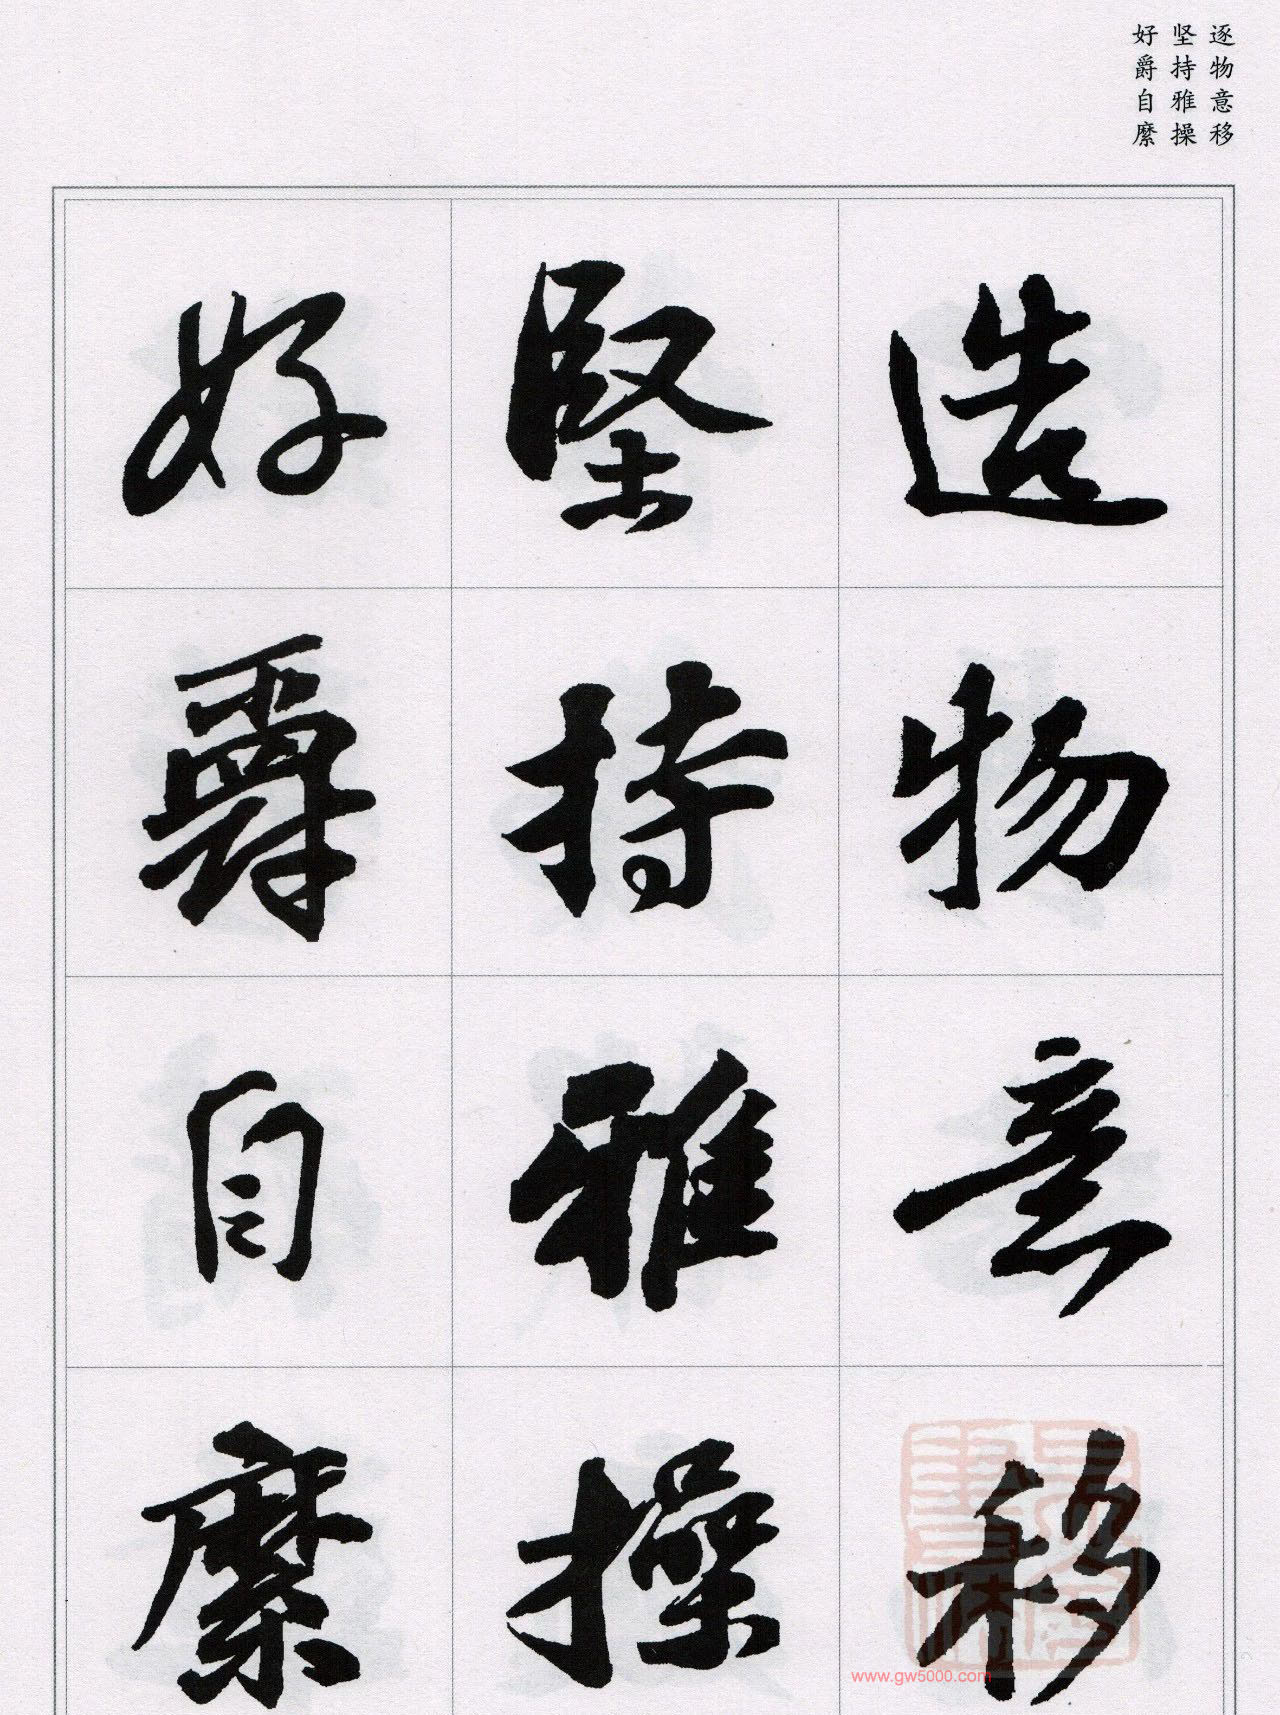 逐物意移
坚持雅操
好爵自縻
造物意移
堅持雅操
好爵自縻
www.gw5000.com